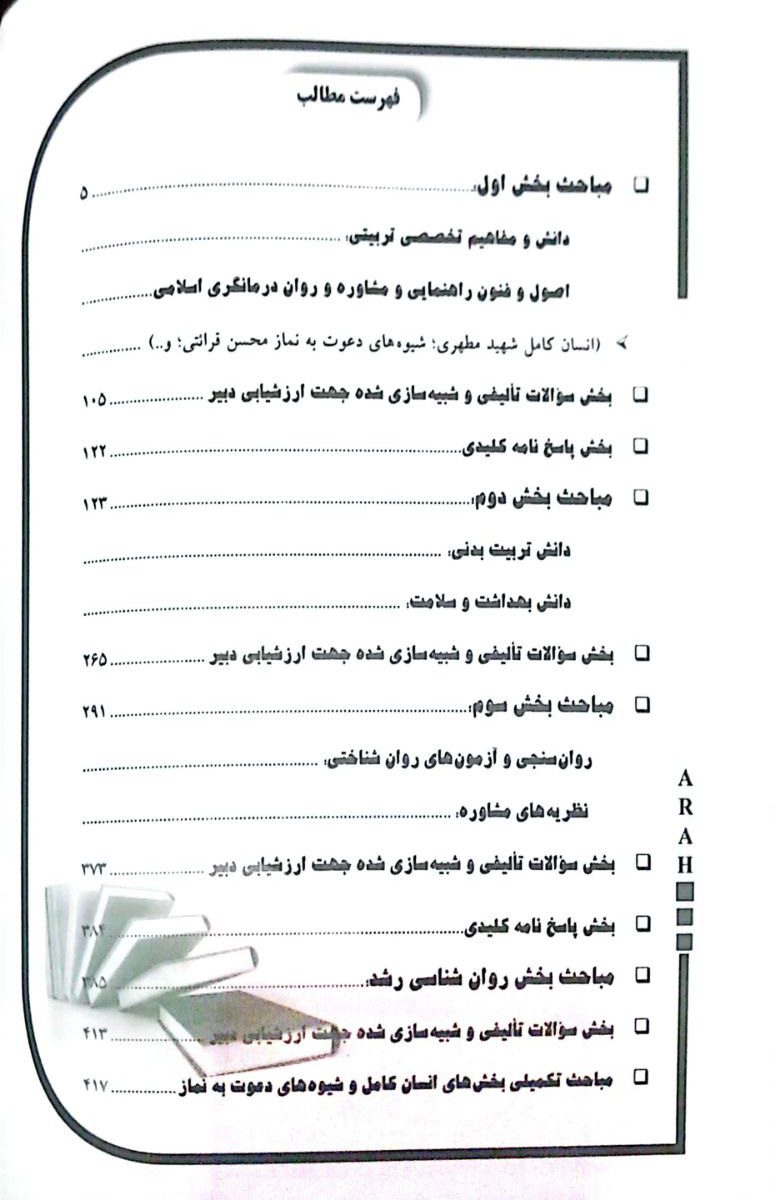 فهرست مطالب
❑ مباحث بخش اول: ........ ۵
دانش و مفاهیم تخصصی تربیتی: ........
اصول و فنون راهنمایی و مشاوره و روان درمانگری اسلامی ........
➢ (انسان کامل شهید مطهری؛ شیوه‌های دعوت به نماز محسن قرائتی؛ و..) ........
❑ بخش سؤالات تألیفی و شبیه‌سازی شده جهت ارزشیابی دبیر ........ ۱۰۵
❑ بخش پاسخ نامه کلیدی ........ ۱۲۲
❑ مباحث بخش دوم: ........ ۱۲۳
دانش تربیت بدنی: ........
دانش بهداشت و سلامت: ........
❑ بخش سؤالات تألیفی و شبیه‌سازی شده جهت ارزشیابی دبیر ........ ۲۶۵
❑ مباحث بخش سوم: ........ ۲۹۱
روان‌سنجی و آزمون‌های روان شناختی: ........
نظریه‌های مشاوره: ........
❑ بخش سؤالات تألیفی و شبیه‌سازی شده جهت ارزشیابی دبیر ........ ۳۷۳
❑ بخش پاسخ نامه کلیدی ........ ۳۸۴
❑ مباحث بخش روان شناسی رشد: ........ ۳۸۵
❑ بخش سؤالات تألیفی و شبیه‌سازی شده جهت ارزشیابی دبیر ........ ۴۱۳
❑ مباحث تکمیلی بخش‌های انسان کامل و شیوه‌های دعوت به نماز ........ ۴۱۷
ARAH